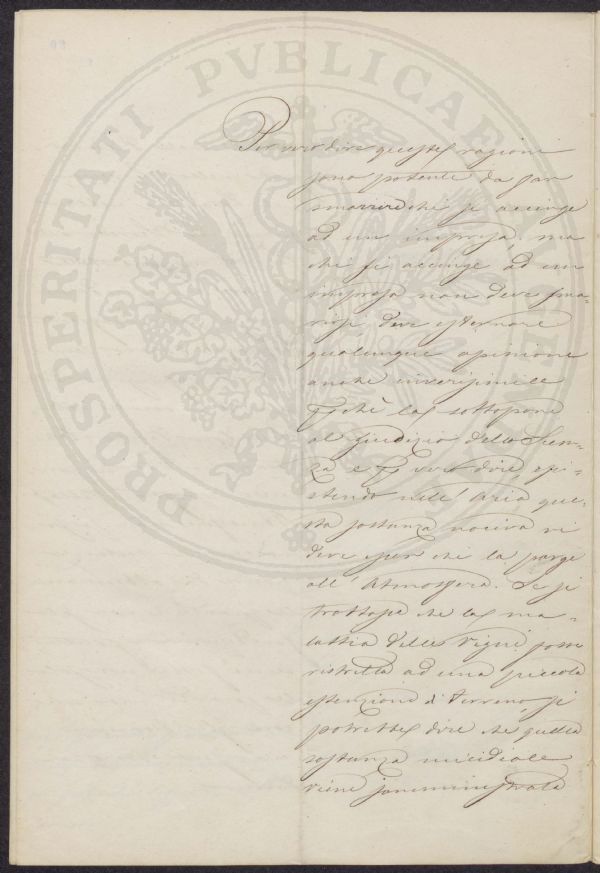 PROSPERITATI PVBLICAE
Per vero dire queste ragioni
sono potente da far
smarrire chi si accinge
ad un impresa, ma
chi si accinge ad un
impresa non deve sma-
rirsi deve esternare
qualunque opinione
anche inverisimile
Perchè la sottopone
al giudizio della Scien-
za e Per vero dire, esi-
stendo nell' Aria que-
sta sostanza nociva vi
deve esser chi la porge
all' Atmosfera. Se si
trattasse che la ma-
lattia delle Vigni fosse
ristretta ad una piccola
estenzione di Terreno si
potrebbe dire che quella
sostanza micidiale
viene somministrata